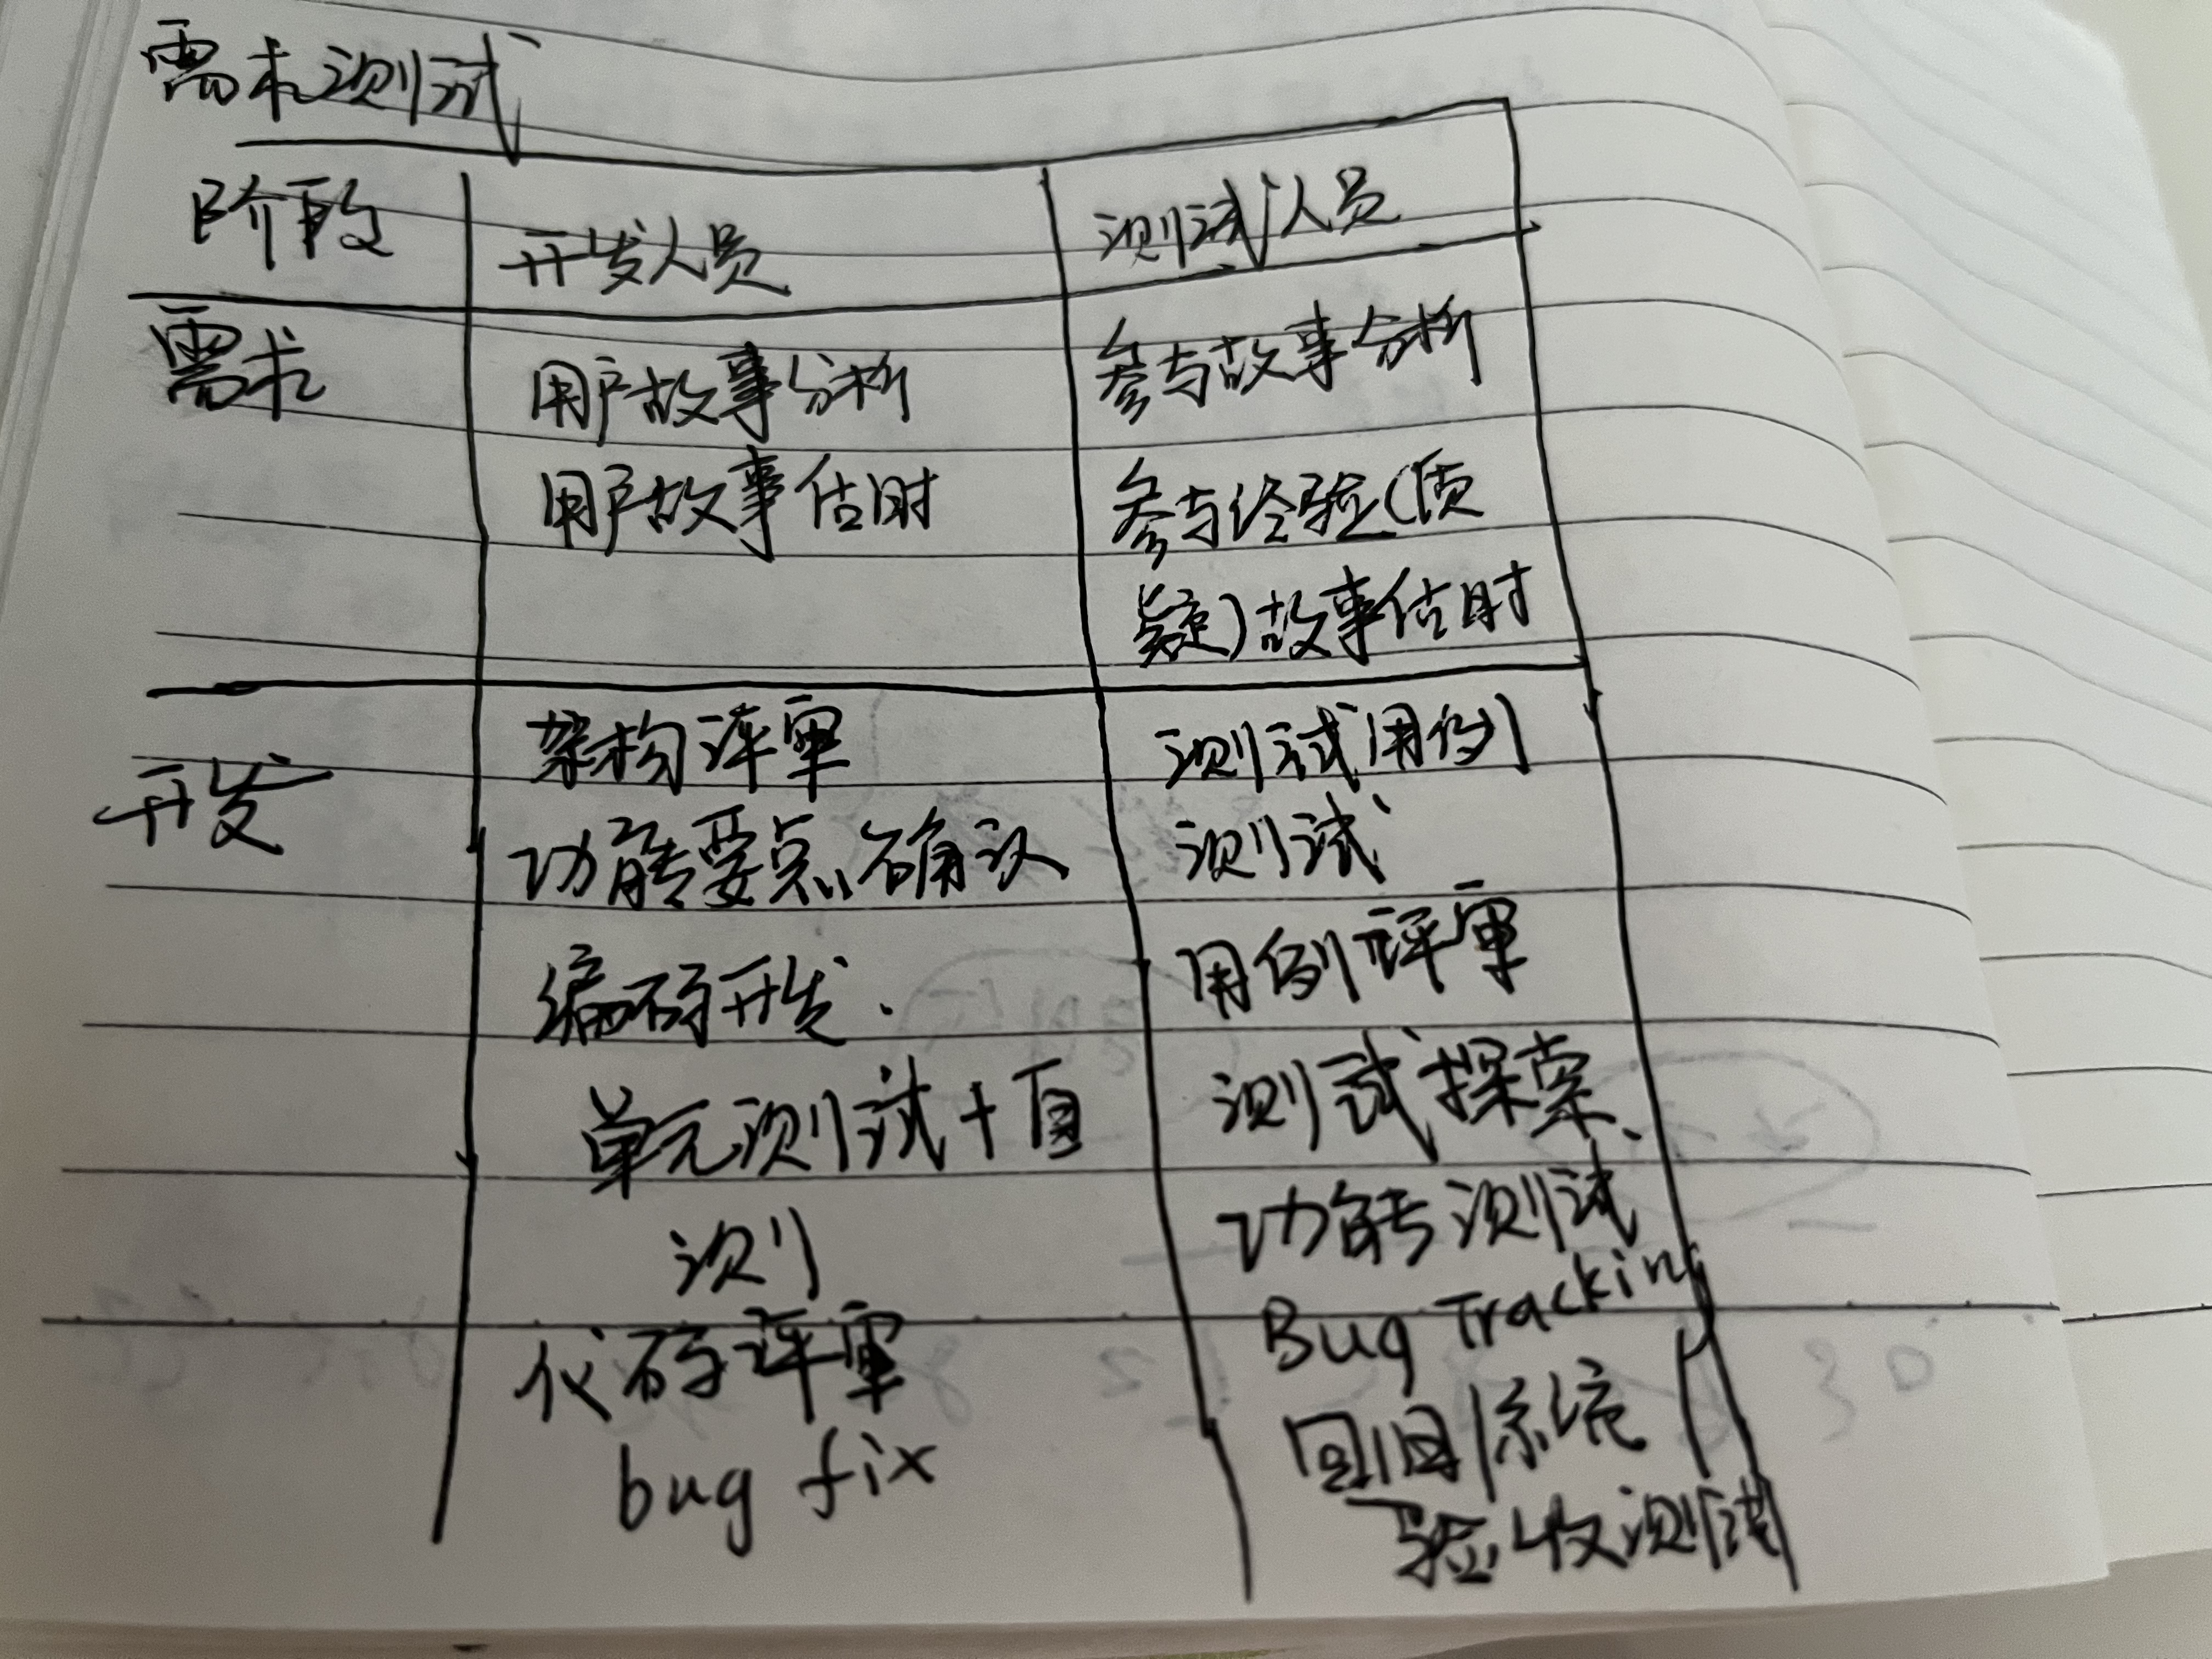 需求测试
阶段 开发人员 测试人员
需求 用户故事分析 参与故事分析
用户故事估时 参与经验(质
疑)故事估时
开发 架构评审 测试用例
功能要点确认 测试
编码开发. 用例评审
单元测试+自 测试探索、
测 功能测试
代码评审 Bug Tracking
bug fix 回归/系统/
验收测试